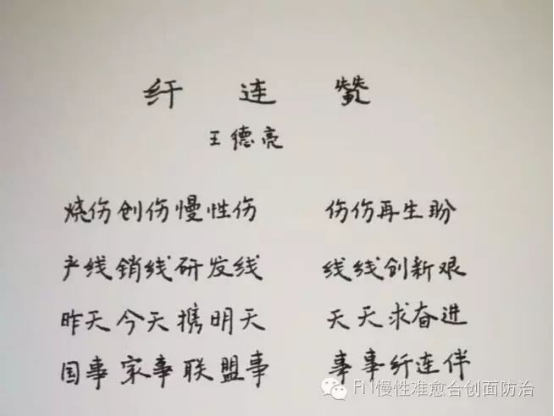 纤连赞
王德亮
烧伤创伤慢性伤 伤伤再生盼
产线销线研发线 线线创新艰
昨天今天携明天 天天求奋进
国事家事联盟事 事事纤连伴
FN慢性难愈合创面防治